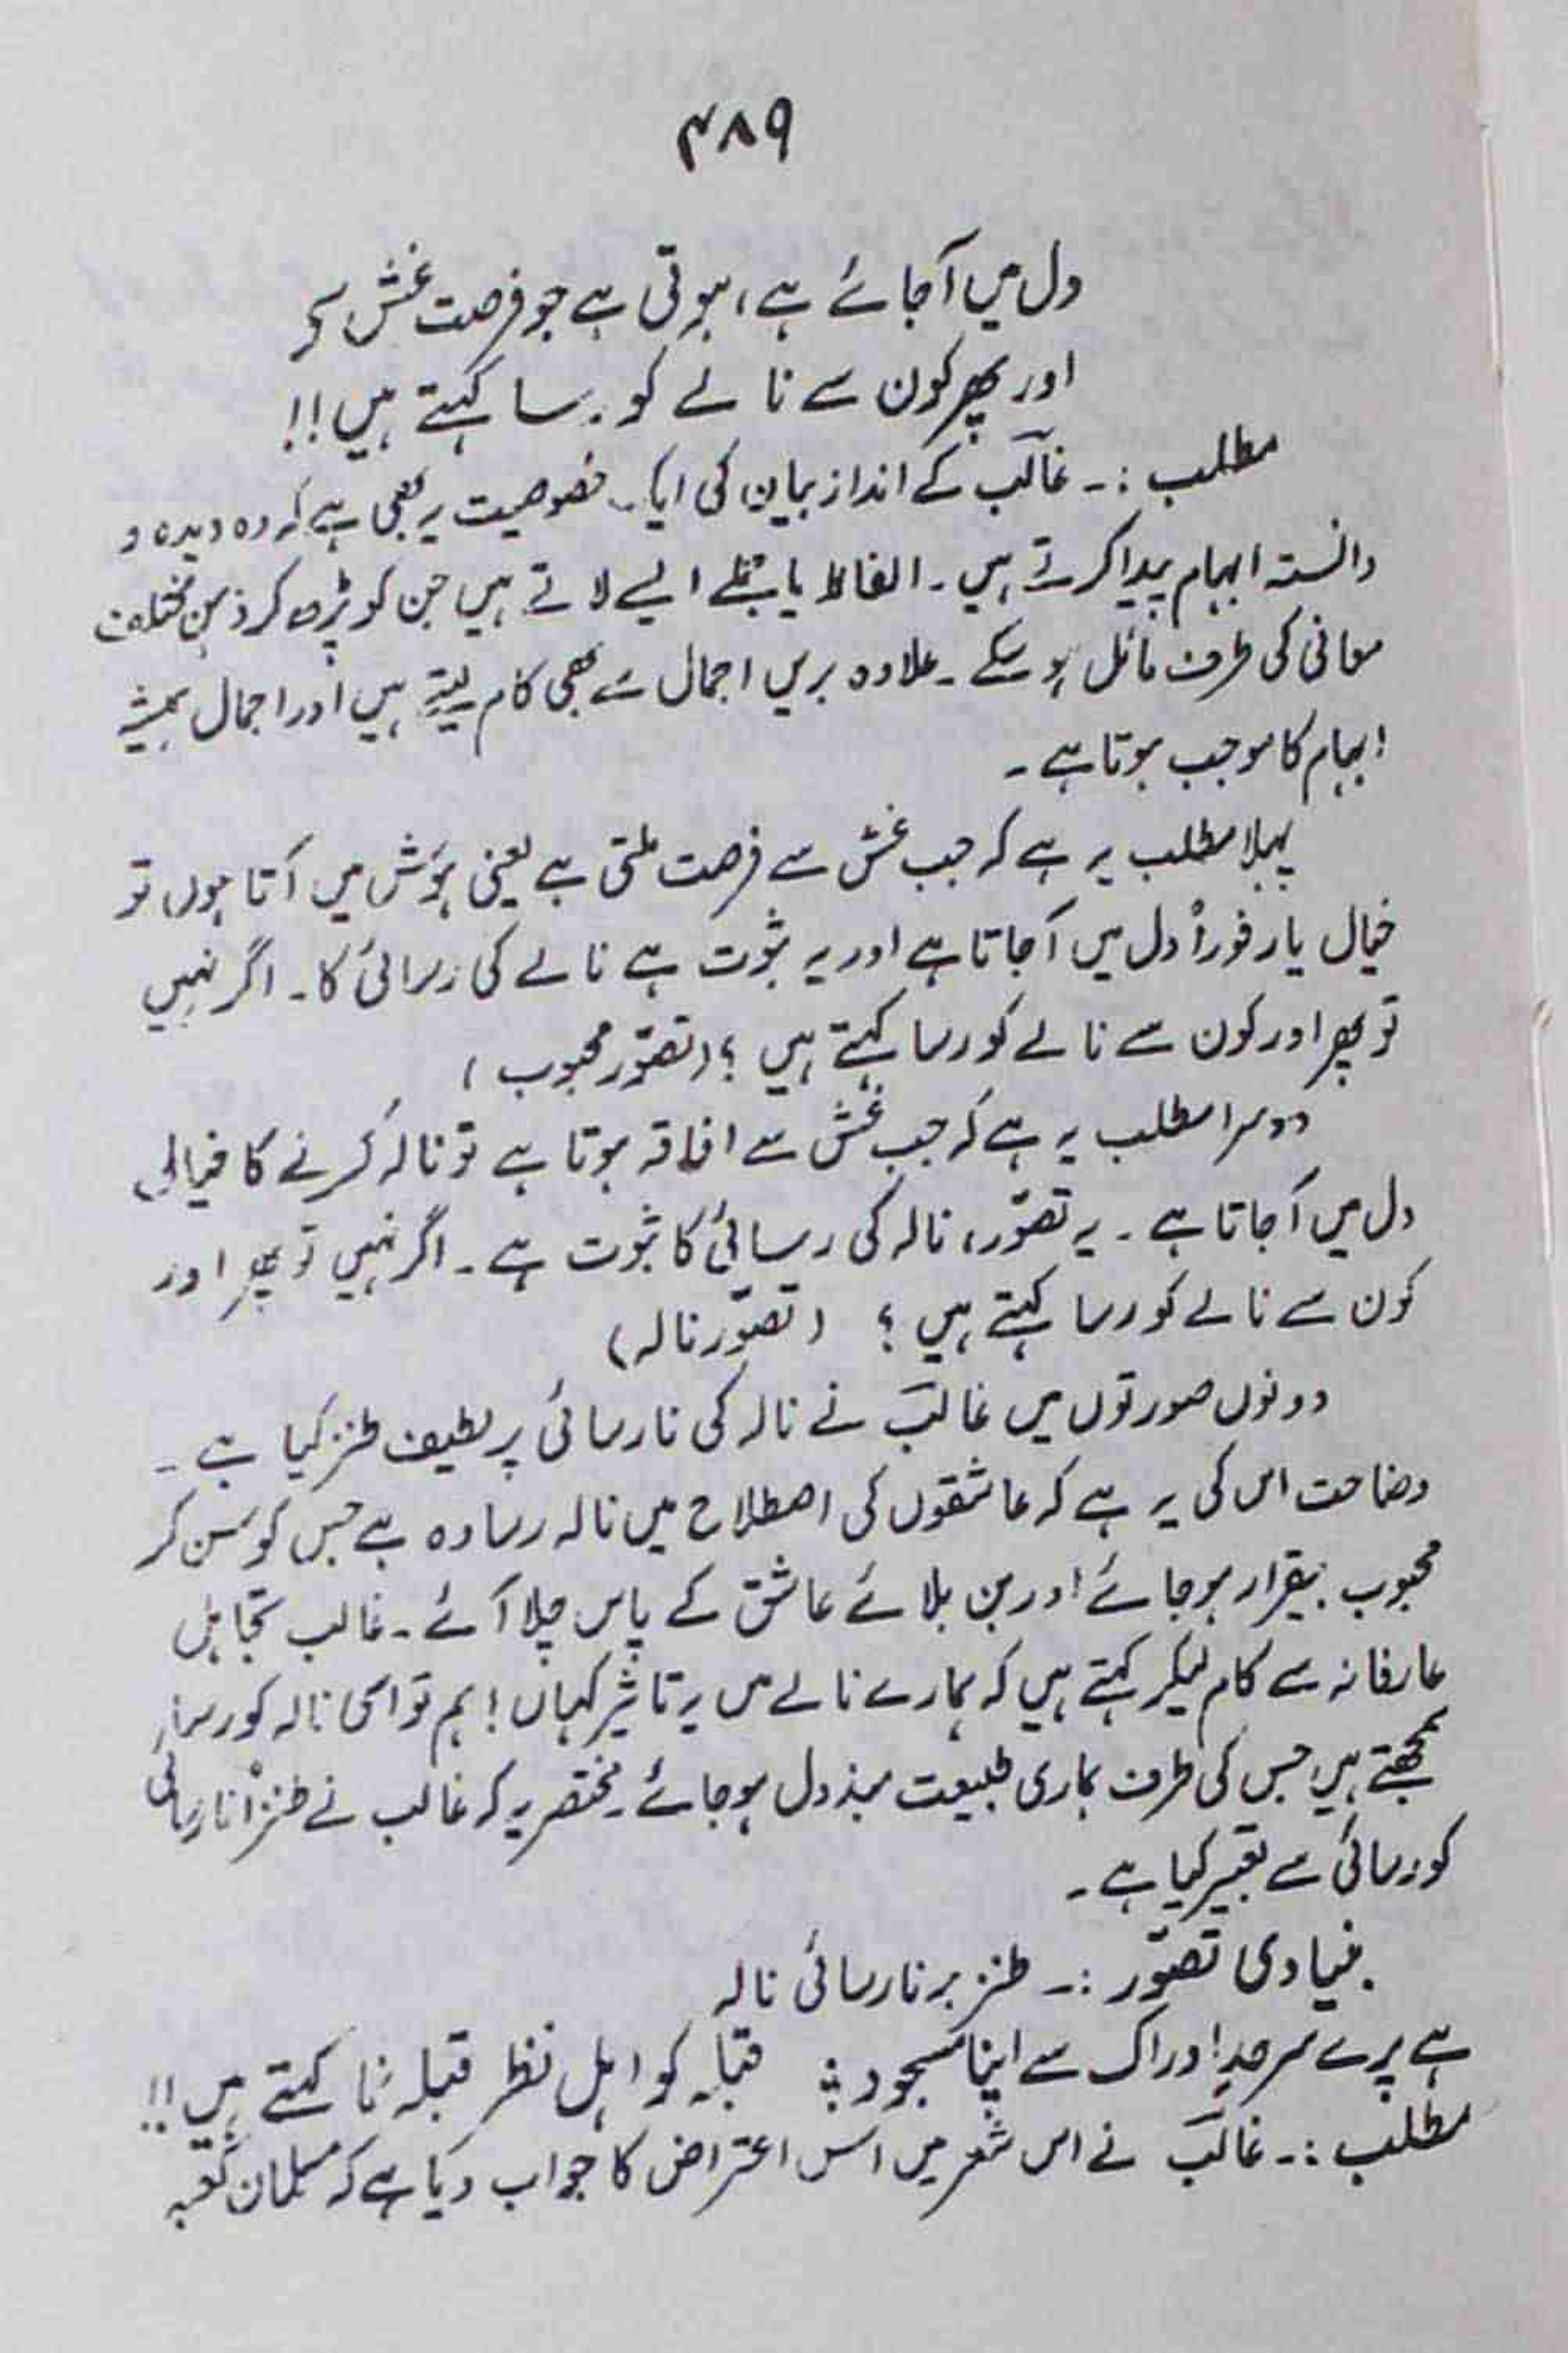 ۴۸۹
دل میں آجائے ہے، ہوتی ہے جو فرصت غش سے
اور پھر کون سے نالے کو رسا کہتے ہیں!!
مطلب :۔ غالب کے انداز بیان کی ایک خصوصیت یہ بھی ہے کہ وہ دیدہ و
دانستہ ابہام پیدا کرتے ہیں۔ الفاظ یا جملے ایسے لاتے ہیں جن کو پڑھ کر ذہن مختلف
معانی کی طرف مائل ہو سکے۔ علاوہ بریں اجمال سے بھی کام لیتے ہیں اور اجمال ہمیشہ
ابہام کا موجب ہوتا ہے۔
پہلا مطلب یہ ہے کہ جب غش سے فرصت ملتی ہے یعنی ہوش میں آتا ہوں تو
خیال یار فوراً دل میں آجاتا ہے اور یہ ثبوت ہے نالے کی رسائی کا۔ اگر نہیں
تو پھر اور کون سے نالے کو رسا کہتے ہیں؟ (تصوّر محبوب)
دوسرا مطلب یہ ہے کہ جب غش سے افاقہ ہوتا ہے تو نالہ کرنے کا خیال
دل میں آجاتا ہے۔ یہ تصوّر، نالہ کی رسائی کا ثبوت ہے۔ اگر نہیں تو پھر اور
کون سے نالے کو رسا کہتے ہیں؟ (تصوّر نالہ)
دونوں صورتوں میں غالبؔ نے نالہ کی نارسائی پر لطیف طنز کیا ہے۔
وضاحت اس کی یہ ہے کہ عاشقوں کی اصطلاح میں نالہ رسا وہ ہے جس کو سن کر
محبوب بیقرار ہوجائے اور بن بلائے عاشق کے پاس چلا آئے۔ غالب تجاہل
عارفانہ سے کام لیکر کہتے ہیں کہ ہمارے نالے میں یہ تاثیر کہاں! ہم تو اسی نالہ کو رسا
سمجھتے ہیں جس کی طرف ہماری طبیعت مبذول ہوجائے۔ مختصر یہ کہ غالب نے طنزاً نارسائی
کو رسائی سے تعبیر کیا ہے۔
بنیادی تصوّر :۔ طنز بر نارسائی نالہ
ہے پرے سرحدِ ادراک سے اپنا مسجود ؛ قبلہ کو اہل نظر قبلہ نما کہتے ہیں!!
مطلب :۔ غالبؔ نے اس شعر میں اس اعتراض کا جواب دیا ہے کہ مسلمان کعبہ